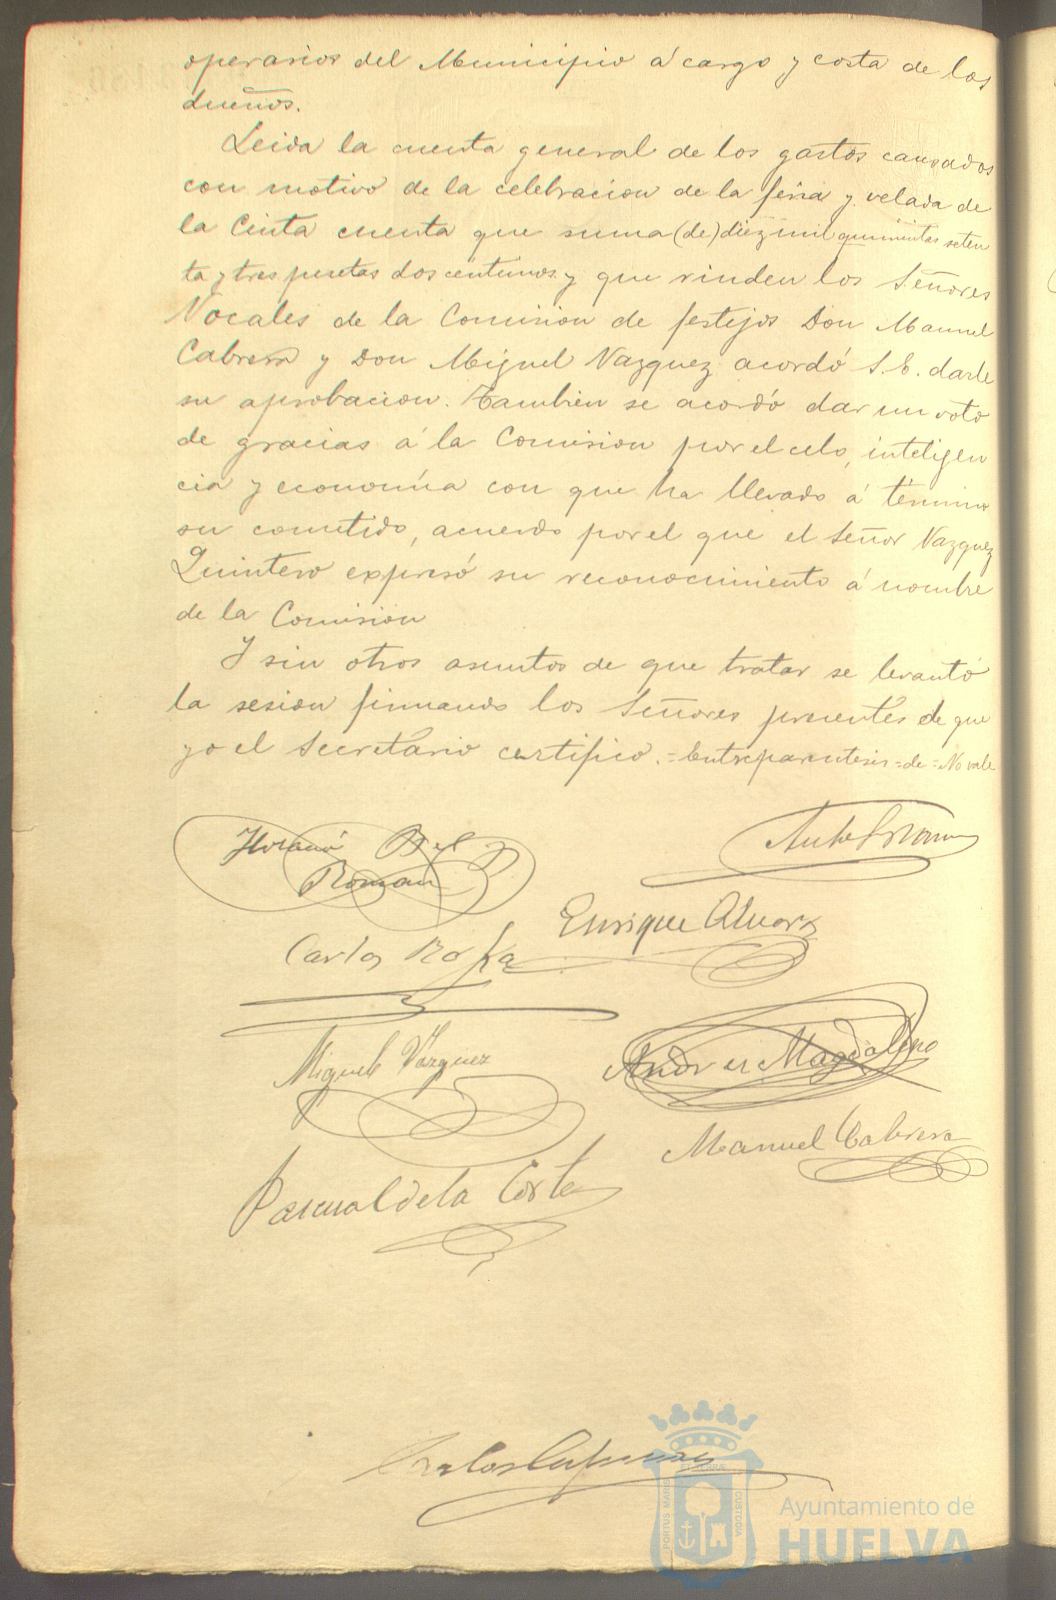 operarios del Municipio á cargo y costa de los
dueños.
Leida la cuenta general de los gastos causados
con motivo de la celebracion de la feria y velada de
la Cinta cuenta que suma (de) diez mil quinientas seten
ta y tres pesetas dos centimos y que rinden los Señores
Vocales de la Comision de festejos Don Manuel
Cabrera y Don Miguel Vazquez acordó S. E. darle
su aprobacion. Tambien se acordó dar un voto
de gracias á la Comision por el celo, inteligen
cia y economía con que ha llevado á término
su cometido, acuerdo por el que el Señor Vazquez
Quintero expresó su reconocimiento á nombre
de la Comision
Y sin otros asuntos de que tratar se levantó
la sesion firmando los Señores presentes de que
yo el Secretario certifico. = Entreparentesis = de = No vale
Roman
Enrique
Carlos
Miguel Vazquez
Andres Magdaleno
Manuel Cabrera
Pascual de la Corte
PORTUS MARIS
CUSTODIA
Ayuntamiento de
HUELVA